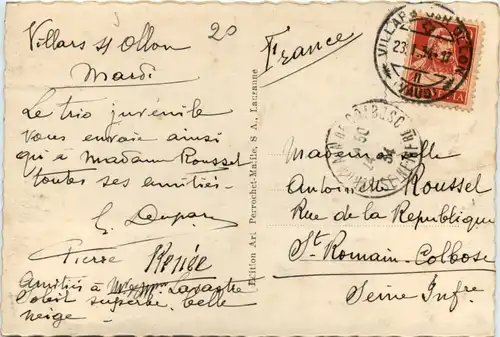 20
Villars s/ Ollon
Mardi
Le trio juvénile
vous envoie ainsi
qu'à Madame Roussel
toutes ses amitiés.
Pierre Renée
Amitiés à
Soleil superbe, belle
neige.
Edition Art Perrochet-Matile, S. A., Lausanne
France
VILLARS SUR OLLON
(VAUD)
HELVETIA
Mademoiselle
Antoinette Roussel
Rue de la République
St Romain-Colbosc
Seine Infre